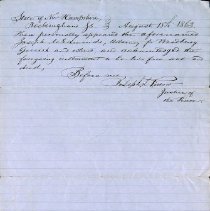 State of New Hampshire
Rockingham Ss. } August 15th 1863
Then personally appeared the aforenamed
Joseph Attorney for
and others and acknowledged the
foregoing instrument to be his free act and
deed,
Before me,
Joseph
Justice of
the Peace